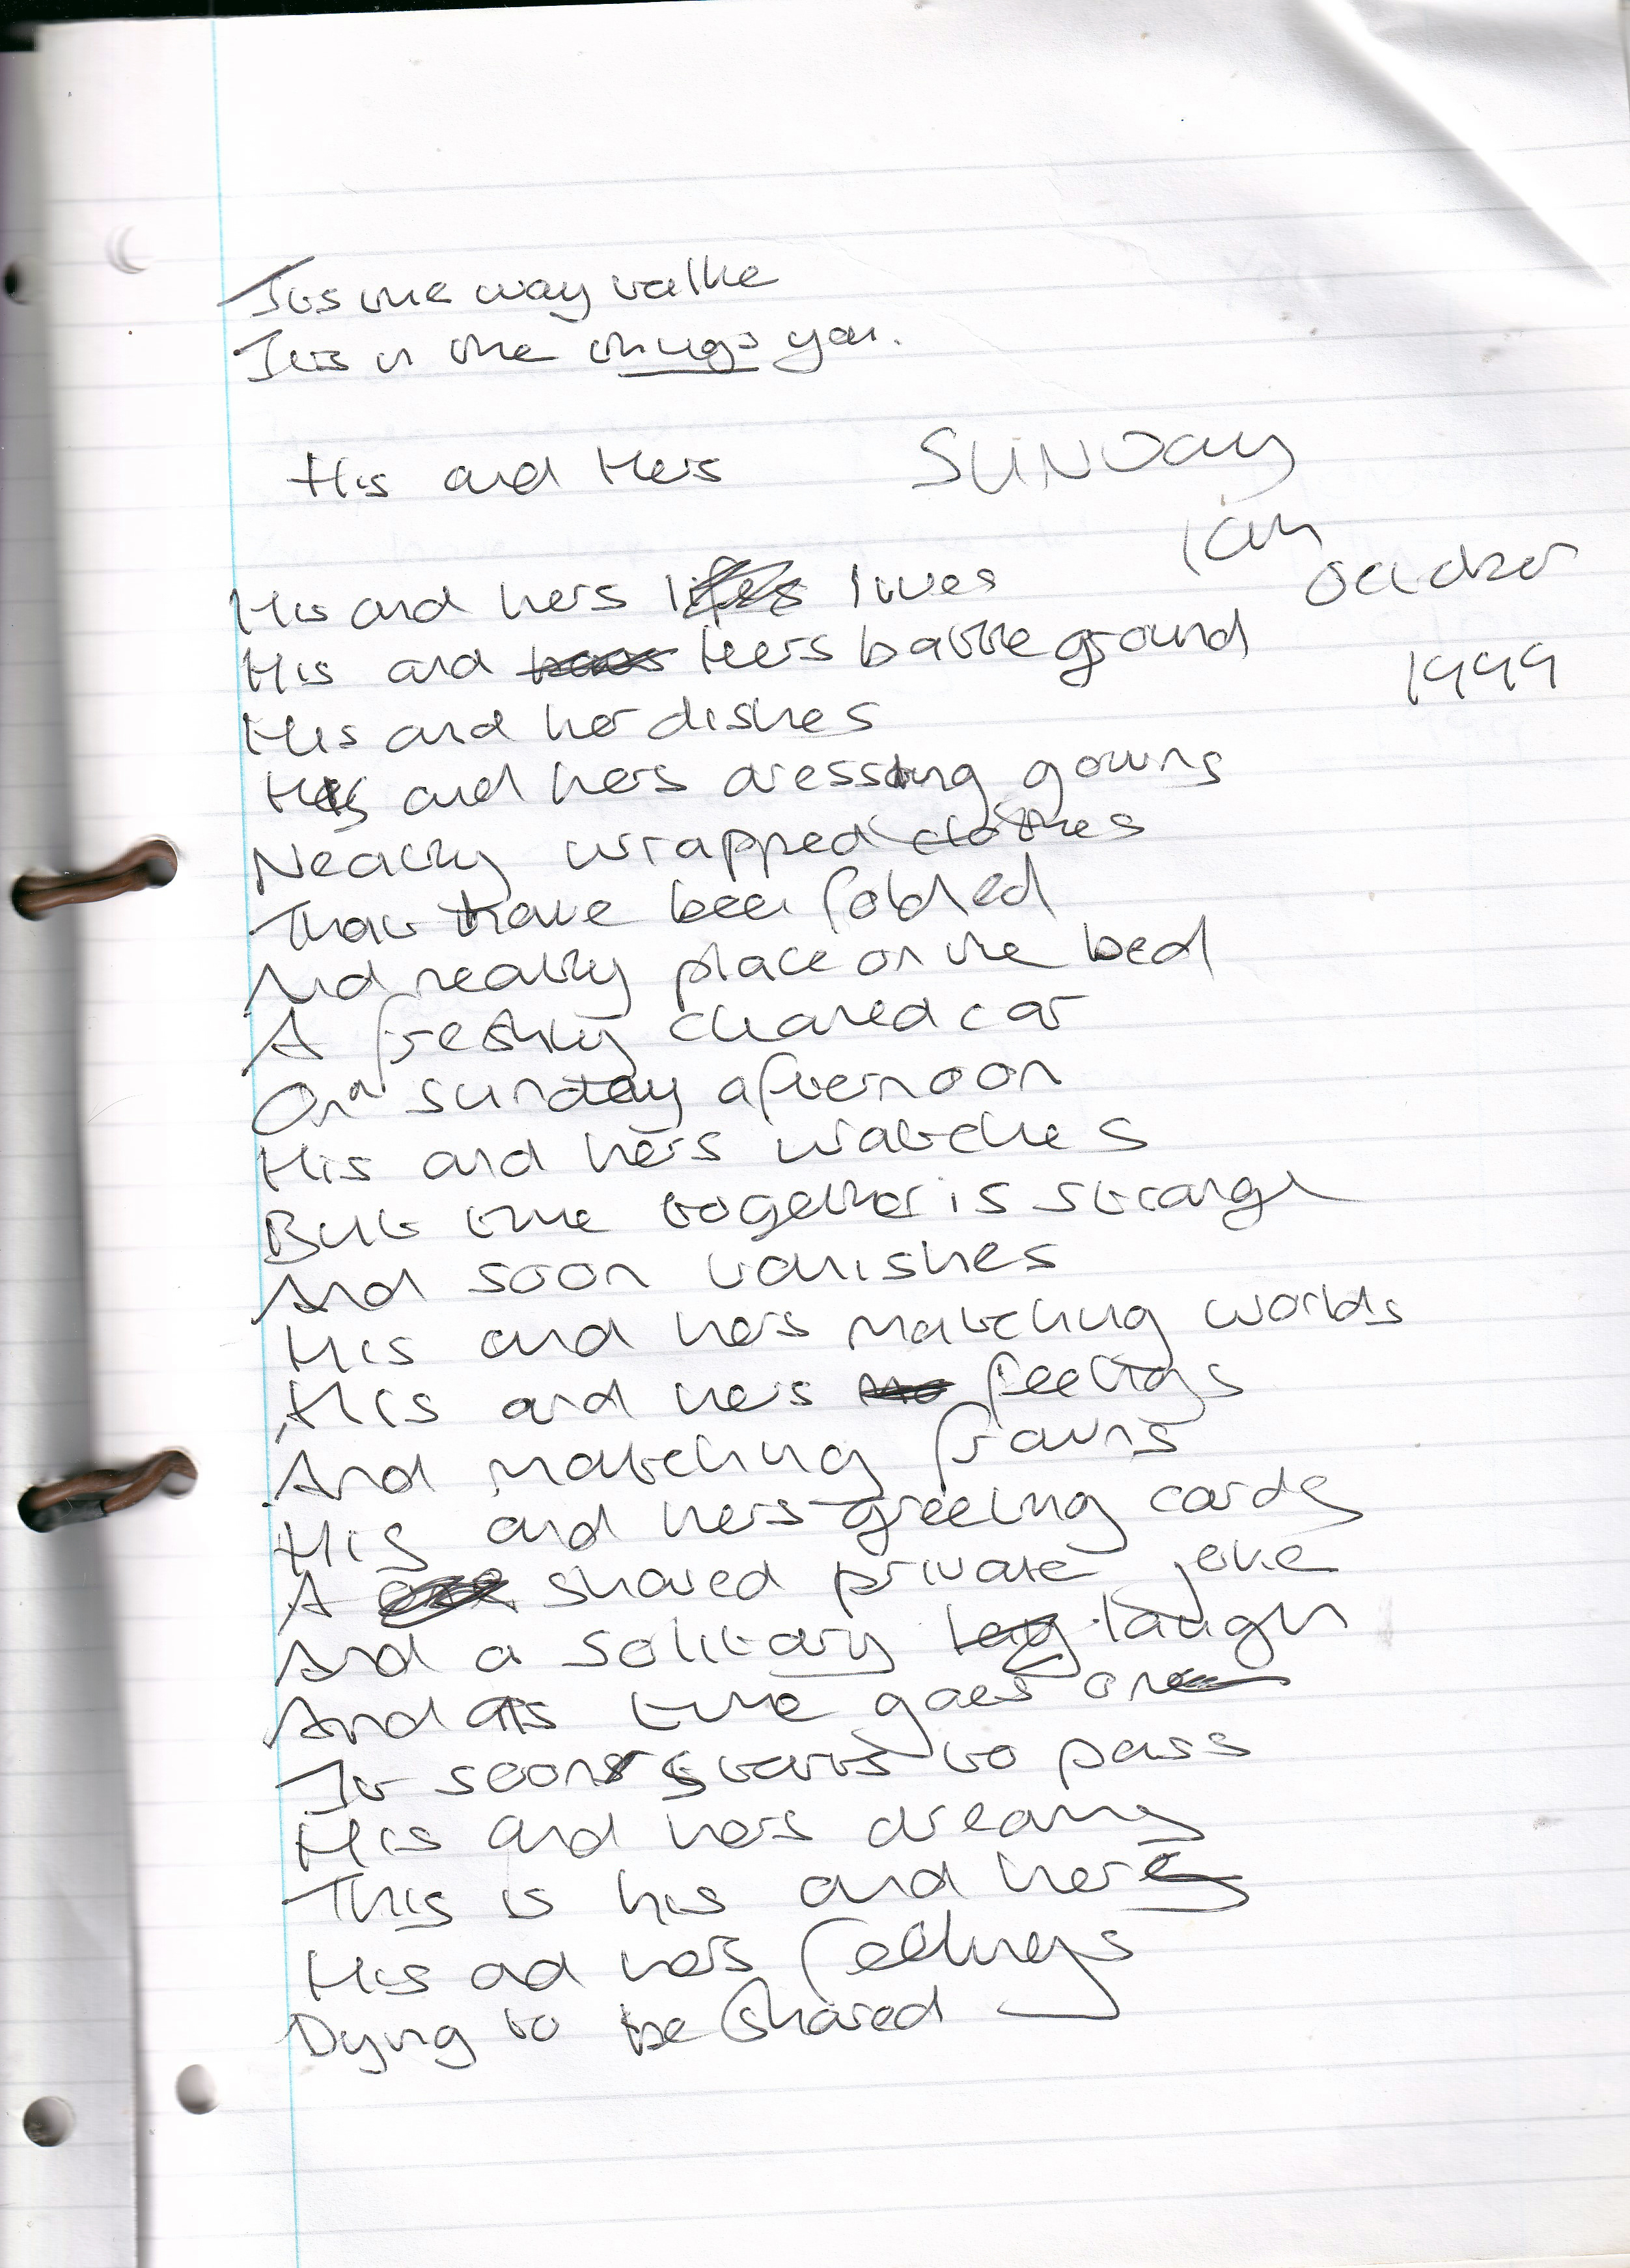 Its the way talke
Its in the things you.
His and Hers SUNDay
October
1999
His and hers lives
His and Hers battle ground
His and her dishes
His and hers dressing gowns
Neatly wrapped clothes
That have been folded
And neatly place on the bed
A freshly cleaned car
On a sunday afternoon
His and hers watches
But time together is strange
And soon vanishes
His and hers matching worlds
His and hers feelings
And matching frowns
His and hers greeting cards
A shared private joke
And a solitary laugh
And as time goes on
It soon starts to pass
His and hers dreams
This is his and hers
His ad hers feelings
Dying to be shared